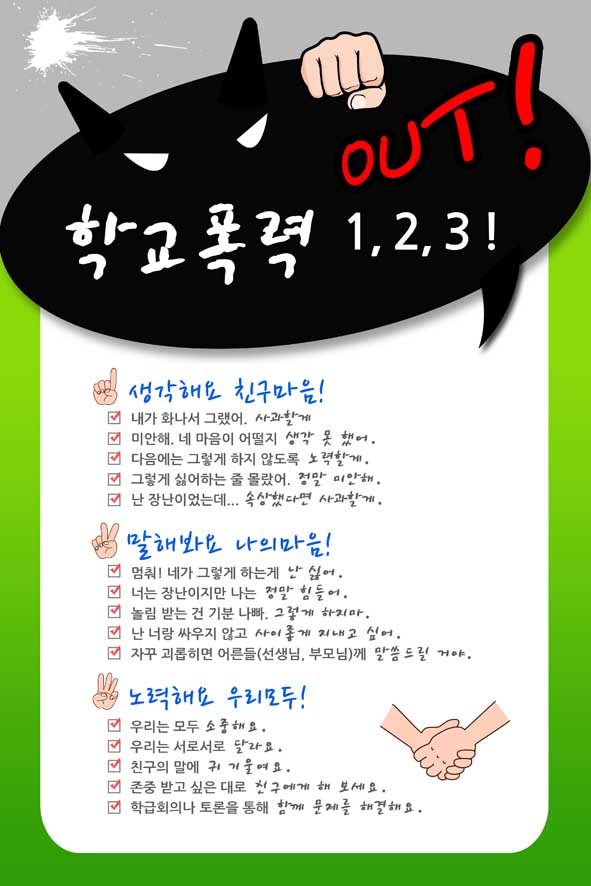 OUT!
학교폭력 1, 2, 3 !
생각해요 친구마음!
내가 화나서 그랬어. 사과할게
미안해. 네 마음이 어떨지 생각 못 했어.
다음에는 그렇게 하지 않도록 노력할게.
그렇게 싫어하는 줄 몰랐어. 정말 미안해.
난 장난이었는데... 속상했다면 사과할게.
말해봐요 나의마음!
멈춰! 네가 그렇게 하는게 난 싫어.
너는 장난이지만 나는 정말 힘들어.
놀림 받는 건 기분 나빠. 그렇게 하지마.
난 너랑 싸우지 않고 사이좋게 지내고 싶어.
자꾸 괴롭히면 어른들(선생님, 부모님)께 말씀드릴 거야.
노력해요 우리모두!
우리는 모두 소중해요.
우리는 서로서로 달라요.
친구의 말에 귀 기울여요.
존중 받고 싶은 대로 친구에게 해 보세요.
학급회의나 토론을 통해 함께 문제를 해결해요.